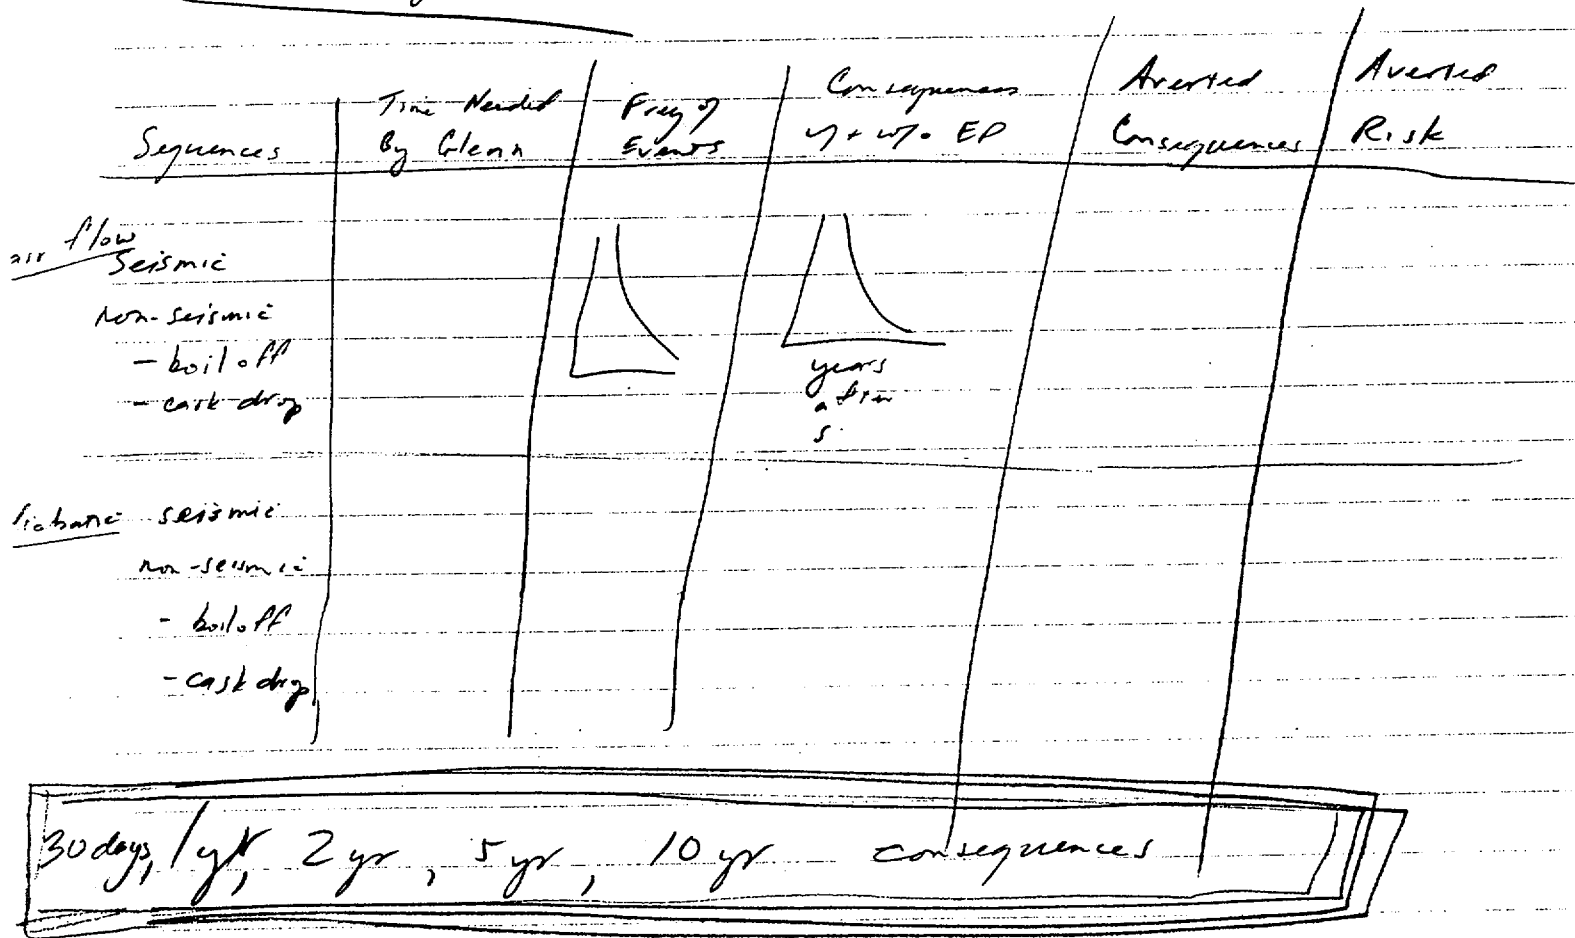 Sequences
Time Needed
By Glenn
Freq of
Events
Consequences
w/ + w/o EP
Averted
Consequences
Averted
Risk
air flow
Seismic
non-seismic
- boil off
- cask drop
years
after
s.
seismic
non-seismic
- boiloff
- cask drop
30 days, 1 yr, 2 yr, 5 yr, 10 yr consequences